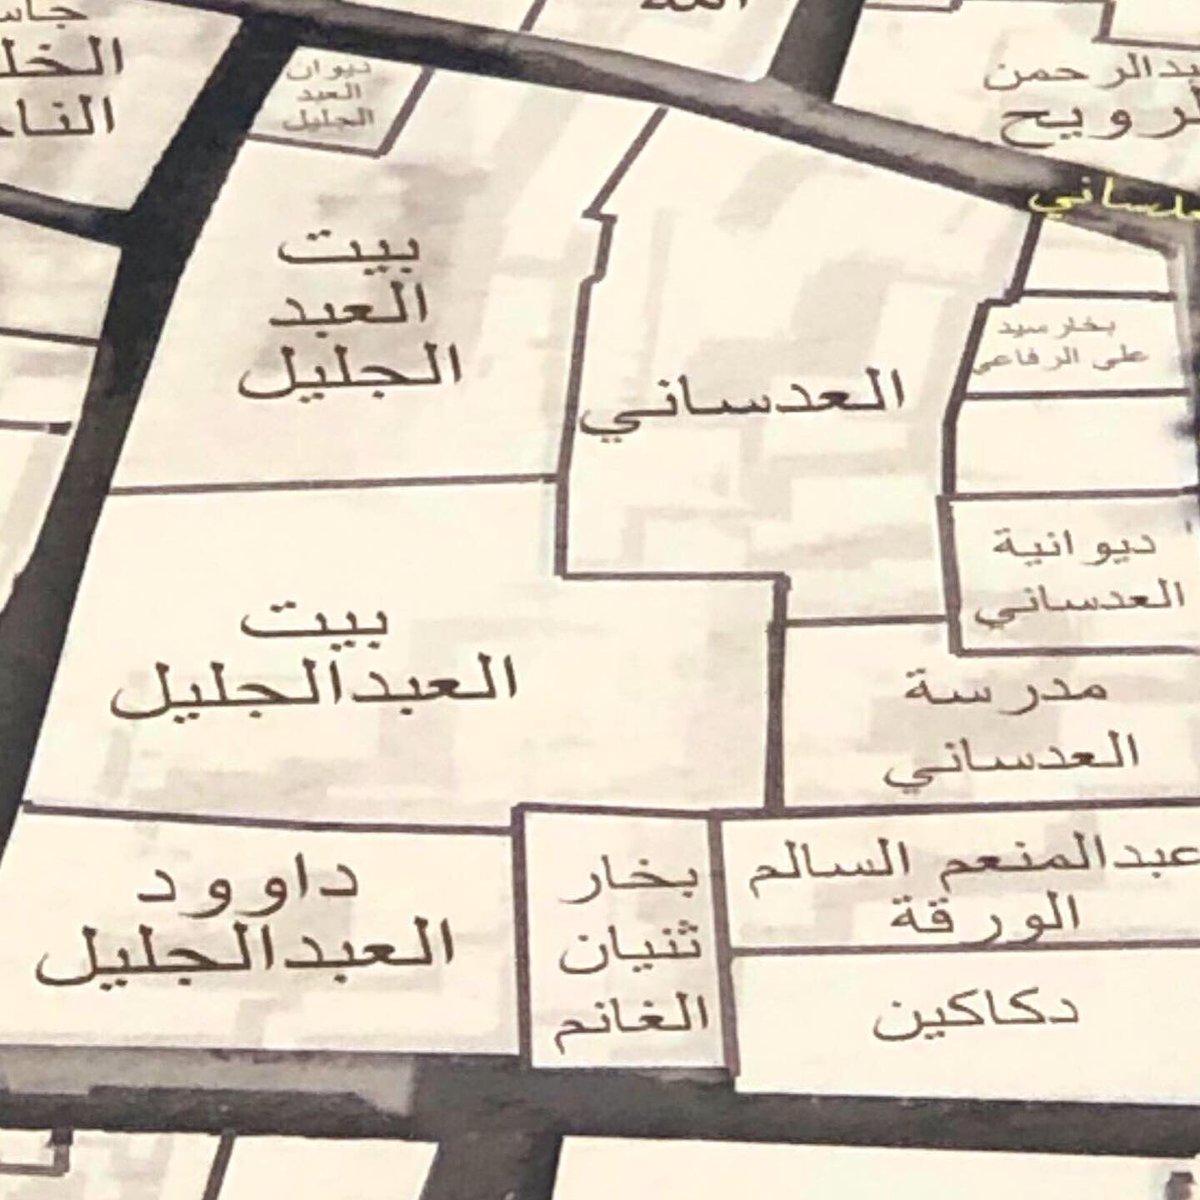 الخلـ
ديوان
العبد
الجليل
بدالرحمن
لرويح
دساني
بيت
العبد
الجليل
العدساني
بخار سيد
علي الرفاعي
ديوانية
العدساني
بيت
العبدالجليل
مدرسة
العدساني
داوود
العبدالجليل
بخار
ثنيان
الغانم
عبدالمنعم السالم
الورقة
دكاكين